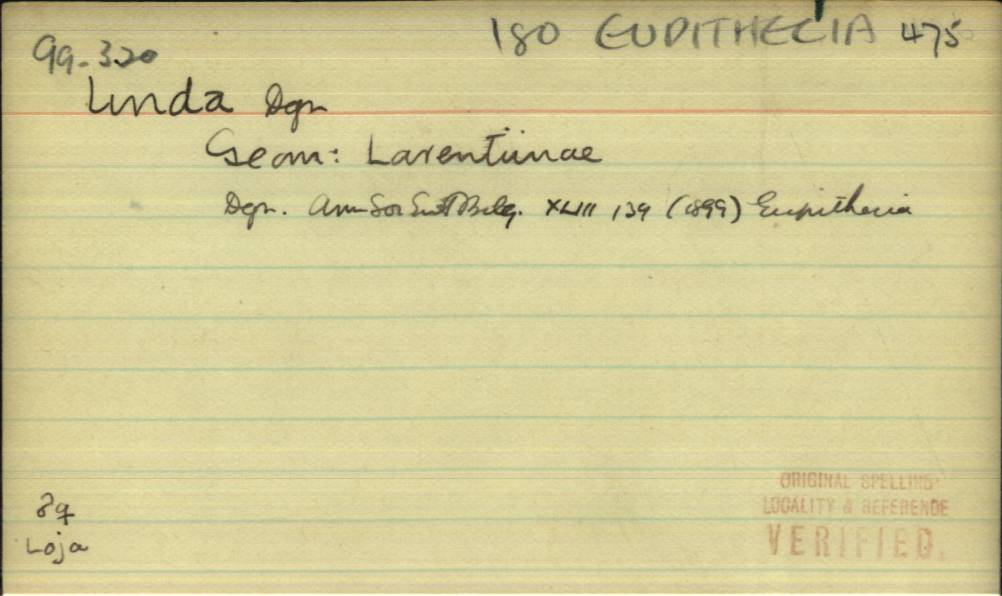 180 EUPITHECIA 475
99.320
linda Dgn
Geom: Larentiinae
Dgn. Ann Soc Ent Belg. XLIII 139 (1899) Eupithecia
Loja
ORIGINAL SPELLING
LOCALITY & REFERENCE
VERIFIED.